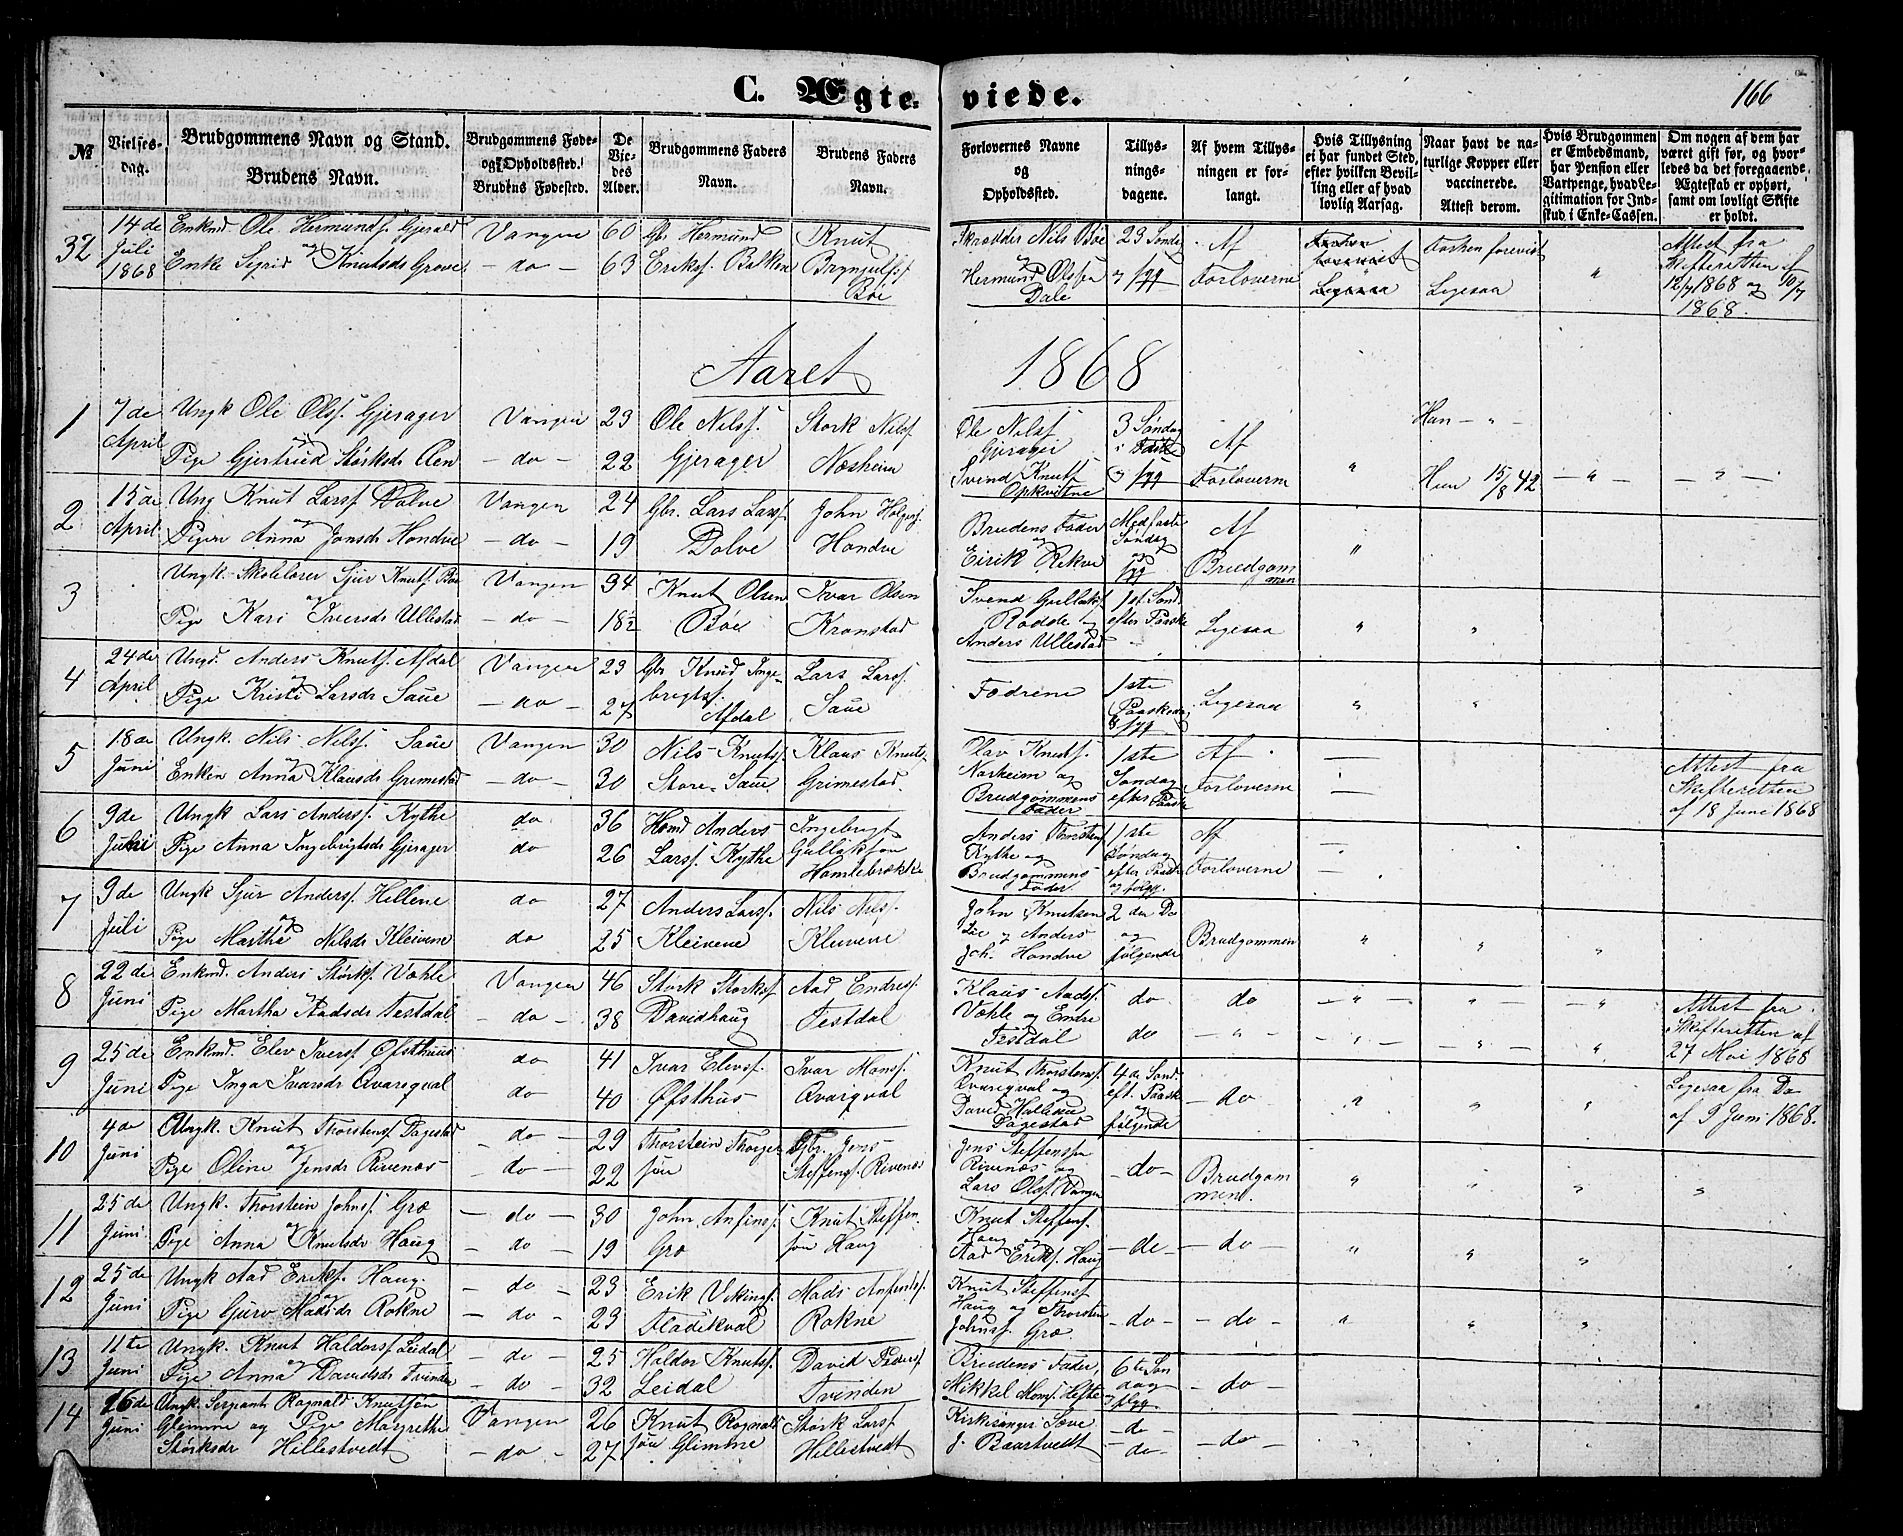 166
C. Ægte- viede.
№
Vielses-
dag.
Brudgommens Navn og Stand.
Brudens Navn.
Brudgommens Føde-
og Opholdssted.
Brudens Fødested.
De
Vie-
des
Alder.
Brudgommens Faders
Navn.
Brudens Faders
Navn.
Forlovernes Navne
og
Opholdssted.
Tillys-
nings-
dagene.
Af hvem Tillys-
ningen er for-
langt.
Hvis Tillysning
ei har fundet Sted,
efter hvilken Bevil-
ling eller af hvad
lovlig Aarsag.
Naar havt de na-
turlige Kopper eller
vaccinerede.
Attest derom.
Hvis Brudgommen
er Embedsmand,
har Pension eller
Vartpenge, hvad Le-
gitimation for Ind-
skud i Enke-Cassen.
Om nogen af dem har
været gift før, og hvor-
ledes da det foregaaende
Ægteskab er ophørt,
samt om lovligt Skifte
er holdt.
32
14de
Juli
1868
Enkmd Ole Hermundsf. Gjerald
og
Enke Sigrid Knutsdr Grove
Vangen
- do -
60
63
Gbr Hermund
Eriksf. Bakken
Knut
Brynjulfsf
Bøe
Skrædder Nils Bøe
Hermund Olsen
Dale
23 Sønda
Af
Forloverne
Ligesaa
forevist
Ligesaa
Attest fra
Skifteretten af
12/7 1868 og 10/7
1868.
Aaret 1868
1
7de
April
Ungk Ole Olsf. Gjerager
Pige Gjertrud Størksdr Aen
Vangen
- do -
23
22
Ole Nilsf.
Gjerager
Størk Nilsf
Næsheim
Ole Nilsf
Gjerager
Svend Knutf
Opkvitne
3 Søndag
i Faste
Af
Forloverne
Han - " -
Hun 15/8 42
2
15de
April
Ung Knut Larsf Dolve
og
Pigen Anna Jonsdr Hondve
Vangen
- do -
24
19
Gbr. Lars Larsf
Dolve
John Holgerf
Hondve
Brudens Fader
og
Eirik Rekve
Midfaste
Søndag
og
Af
Brudgom
men
3
Ungk. Skolelærer Sjur Knutf. Bøe
og
Pige Kari Iversdr Ullestad
Vangen
- do -
34
18½
Knut Olsen
Bøe
Ivar Olsen
Kronstad
Svend Gullaksf
Rodde og
Anders Ullestad
1st. Sønd.
efter Paaske
Ligesaa
4
24de
April
Ungd. Anders Knutsf. Afdal
og
Pige Kristi Larsdr Saue
Vangen
- do -
23
27
Gbr Knud Inge-
brigtsf.
Afdal
Lars Larsf.
Saue
Fædrene
1ste
Paaskedag
& fgg
Ligesaa
5
18de
Juni
Ungk. Nils Nilsf. Saue
og
Enken Anna Klausdr Grimestad
Vangen
- do -
30
30
Nils Knutsf.
Store-Saue
Klaus Knuts-
Grimestad.
Olav Knutsf.
Norheim og
Brudgommens
Fader
1ste
Søndag
efter Paaske
Af
Forloverne
Attest fra
Skifteretten
af 18 Juni 1868
6
9de
Juli
Ungk Lars Andersf. Kythe
Pige Anna Ingebrigtsdr Gjerager
do
do
36
26
Hmd Anders
Larsf. Kythe
Ingebrigt
Gullaksøn
Hamlebrække
Anders Thorstenf
Kythe og
Brudgommens
Fader
1ste
Søndag
efter Paaske
og følgg.
Af
Forloverne
7
9de
Juli
Ungk Sjur Andersf. Hellene
og
Pige Martha Nilsdr Kleivene
do
do
27
25
Anders Larsf.
Kleivene
Nils Nilsf.
Kleivene
John Knutsen
Lie og Anders
Joh. Hondve
2 den Do
og
følgende
Brudgommen
8
22de
Juni
Enkmd. Anders Størksf. Væhle
og
Pige Martha Aadsdr Festdal
Vangen
- do -
46
38
Størk Størksf
Davidhaug
Aad Endresf.
Festdal
Klaus Aadsf.
Væhle og Endre
Festdal
do
do
do
- " -
Attest fra
Skifteretten af
27 Mai 1868
9
25de
Juni
Enkmd. Elev Iversf Øfsthuus
Pige Inga Ivarsdr Qvarqval
do
do
41
40
Ivar Elevsf.
Øfsthus
Ivar Monsf.
Qvarqval
Knut Thorstensf.
Qvarqval og
David
Dagestad
4de Sønd
eft. Paaske
og
følgende
- do -
Ligesaa fra Do
af 9 Juni 1868.
10
4de
Juni
Ungk. Knut Thorstensf Dagestad
og
Pige Oline Jensdr Rivenæs
- do -
- do -
29
22
Thorstein Thorger
søn
Gbr. Jens
Steffensf. Rivenæs
Jens Steffensøn
Rivenæs og
Lars Olsf. Vangen
- do -
Brudgom
men.
11
25de
Juni
Ungk. Thorstein Johnsf. Græ
og
Pige Anna Knutsdr Haug
- do -
- do -
30
19
John Anfinsf.
Græ
Knut Steffen
søn Haug
Knut Steffensf.
Haug og
Aad Eriksf. Haug
- do -
- do -
12
25de
Juni
Ungk Aad Eriksf. Haug.
og
Pige Guro Madsdr Rokne
- do -
- do -
23
23
Erik Vikingf.
Fladekval
Mads Anfindsf.
Rokne
Knut Steffensf
Haug og Thorsten
Johnsf. Græ
- do -
- do -
13
11te
Juni
Ungk. Knut Haldorsf Leidal
og
Pige Anna Davidsdr Tvinde
- do -
- do -
25
32
Haldor Knutsf.
Leidal
David Pedersf
Tvinden
Brudens Fader,
Mikkel Monsf. Hefte
6te Søn
dag
og flgg.
- do -
14
26de
Juni
Ungk. Serjeant Ragnald Knutsøn
Glimme og Pige Margrethe
Størksdr Hillestvedt
Vangen
- do -
26
27
Knut Ragnald
søn Glimme
Størk Larsf
Hillestvedt
Kirkesanger Sæve
J. Baartvedt
- do -
- do -
- do -